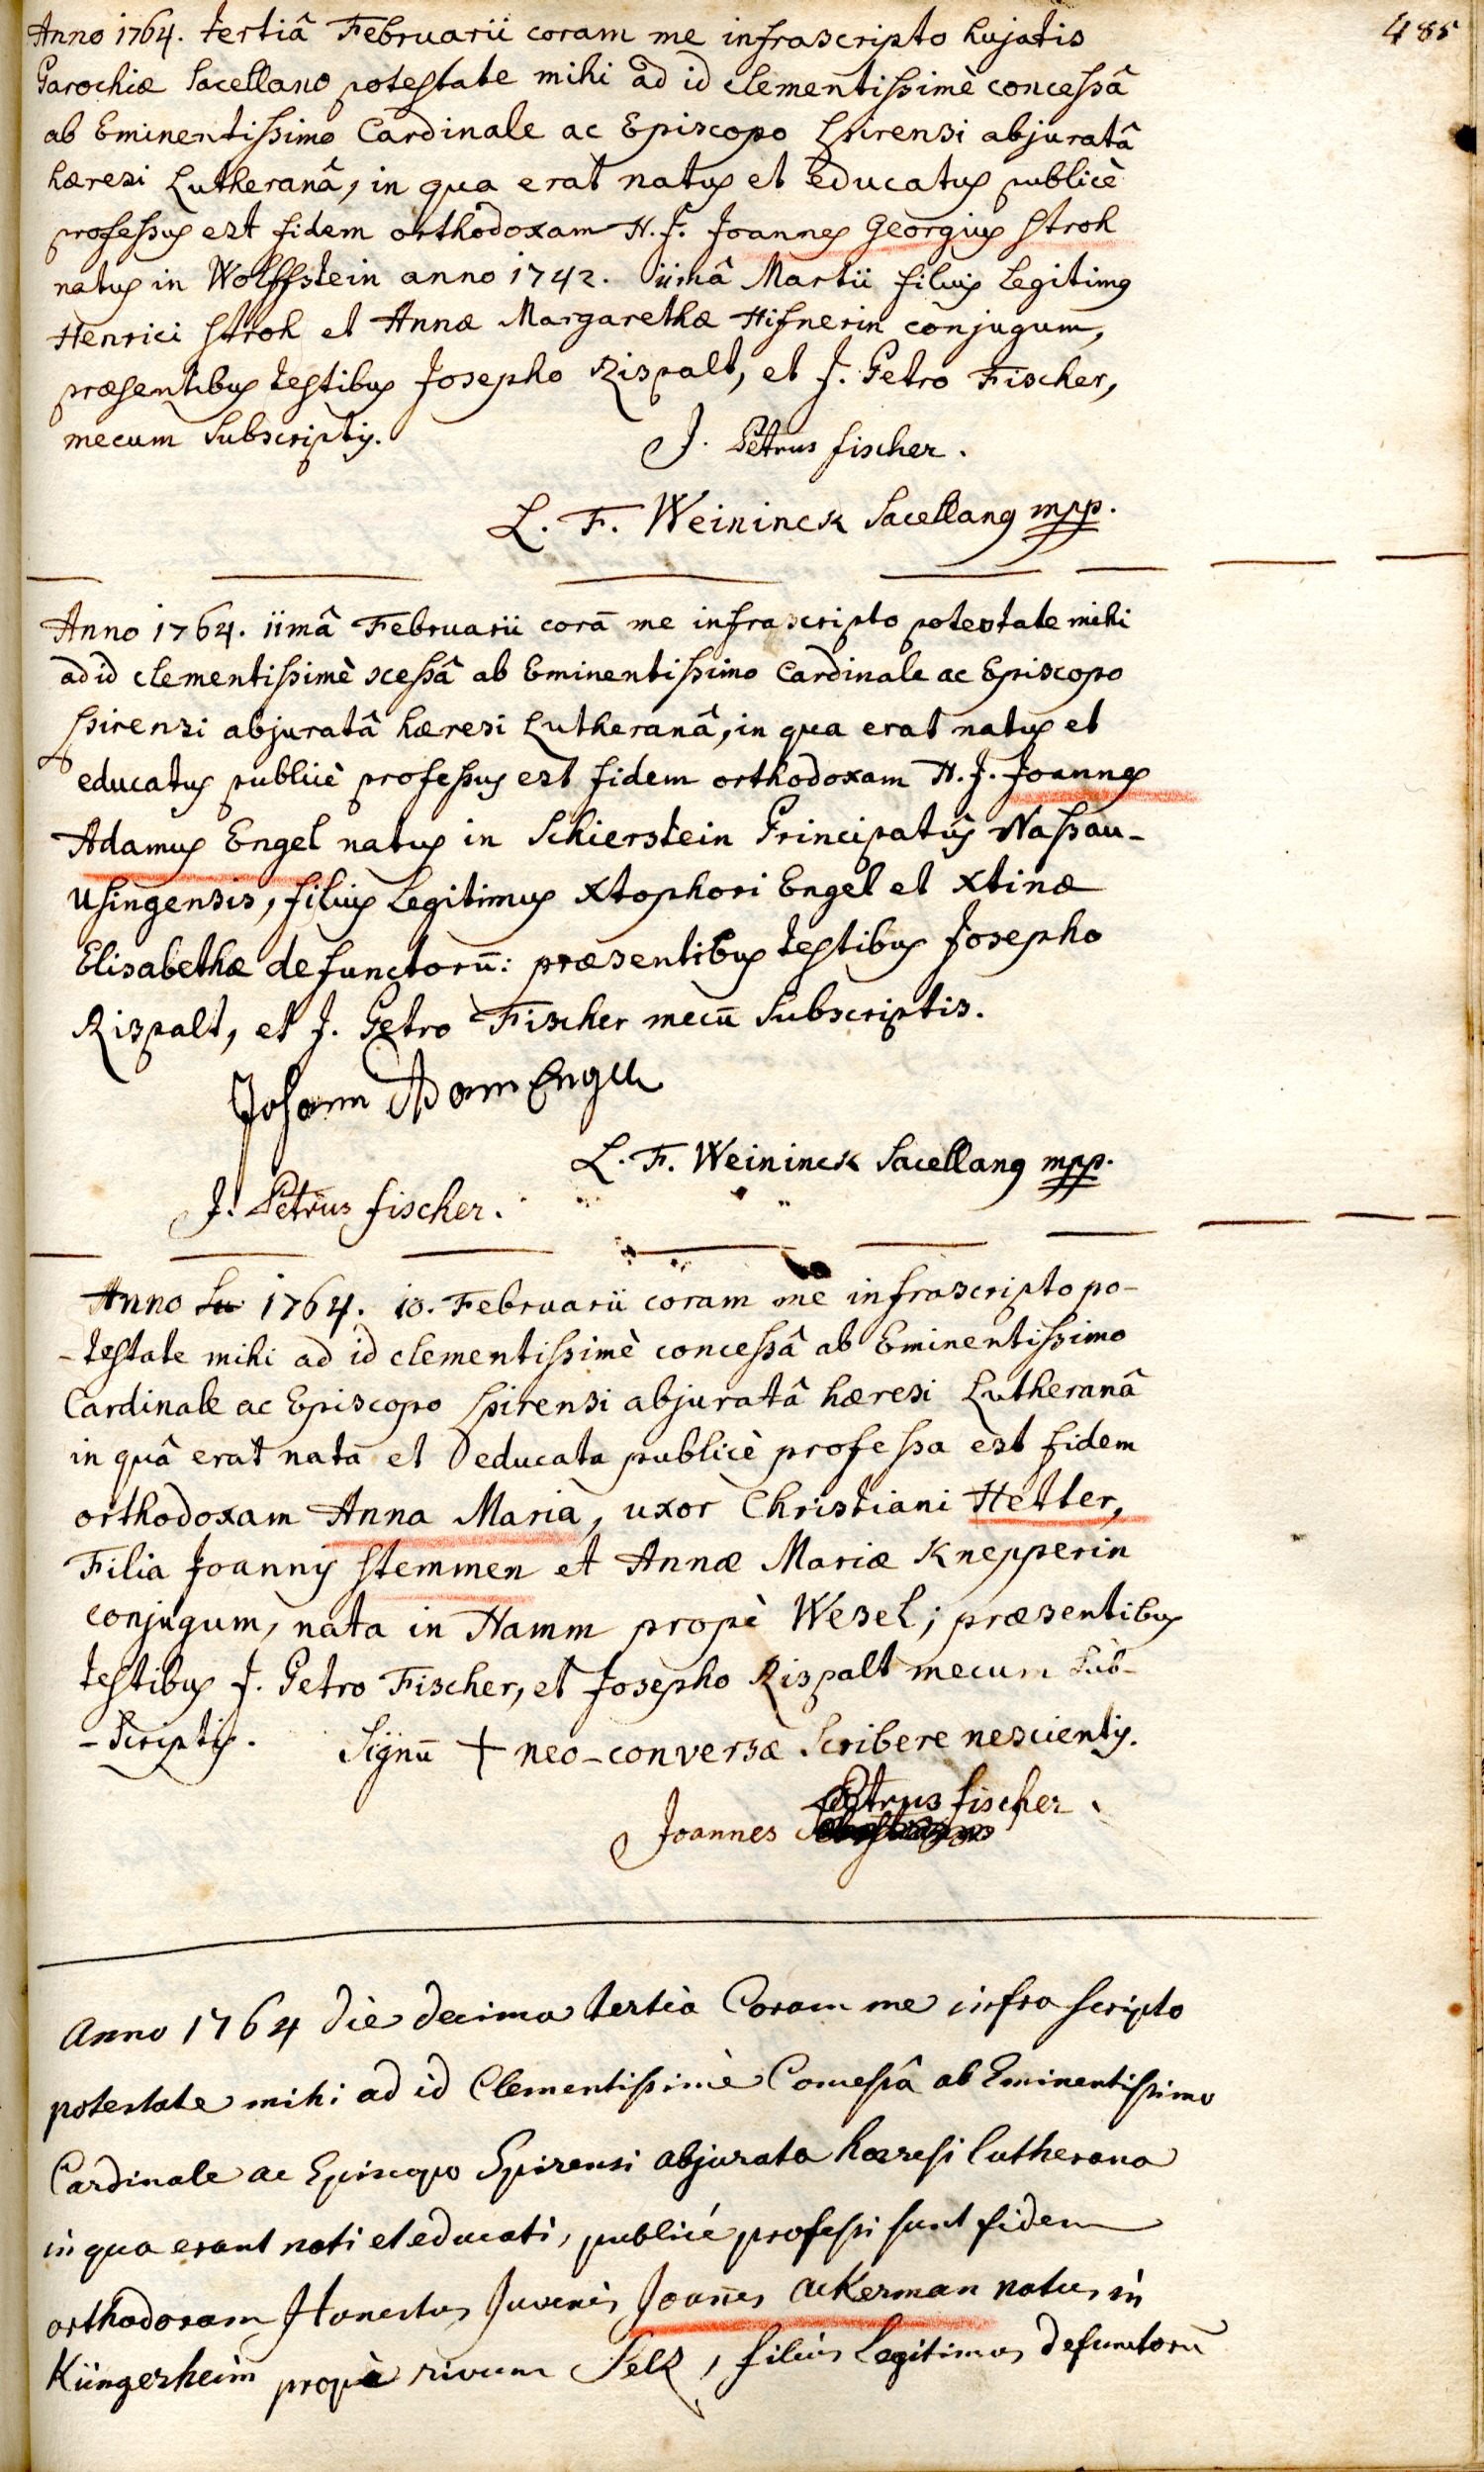 485
Anno 1764. tertiâ Februarii coram me infrascripto hujatis
Parochiæ Sacellano potestate mihi ad id clementissimè concessâ
ab Eminentissimo Cardinale ac Episcopo Spirensi abjuratâ
hæresi Lutheranâ, in qua erat natus et educatus publicè
professus est fidem orthodoxam H. J. Joannes Georgius Stroh
natus in Wolffstein anno 1742. iimâ Martii filius Legitimus
Henrici Stroh et Annæ Margarethæ Hisnerin conjugum,
præsentibus testibus Josepho Rispalt, et J. Petro Fischer,
mecum Subscriptis.
J. Petrus fischer.
L. F. Weininck Sacellanus mpp.
Anno 1764. iimâ Februarii corā me infrascripto potestate mihi
ad id clementissimè ɔcessâ ab Eminentissimo Cardinale ac Episcopo
Spirensi abjuratâ hæresi Lutheranâ, in qua erat natus et
educatus publicè professus est fidem orthodoxam H. J. Joannes
Adamus Engel natus in Schierstein Principatûs Nassau-
Usingensis, filius Legitimus Xtophori Engel et Xtinæ
Elisabethæ defunctorū: præsentibus testibus Josepho
Rispalt, et J. Petro Fischer mecū Subscriptis.
Johann Adam Engel
L. F. Weininck Sacellanus mpp.
J. Petrus fischer.
Anno 1764. 10. Februarii coram me infrascripto po-
-testate mihi ad id clementissimè concessâ ab Eminentissimo
Cardinale ac Episcopo Spirensi abjuratâ hæresi Lutheranâ
in quâ erat nata et educata publicè professa est fidem
orthodoxam Anna Maria, uxor Christiani Hetter,
Filia Joannis Stemmen et Annæ Mariæ Knepperin
conjugum, nata in Hamm propè Wesel; præsentibus
testibus J. Petro Fischer, et Josepho Rispalt mecum Sub-
-Scriptis. Signū + neo-conversæ Scribere nescientis.
Joannes Petrus fischer.
Anno 1764 die decima tertia Coram me infra scripto
potestate mihi ad id Clementissimè Concessâ ab Eminentissimo
Cardinale ac Episcopo Spirensi abjurata hæresi lutherana
in qua erant nati et educati, publicé professi sunt fidem
orthodoxam Honestus Juvenis Joañes Ackerman natus in
Küngerheim propè rivum Selz, filius Legitimus defunctorū